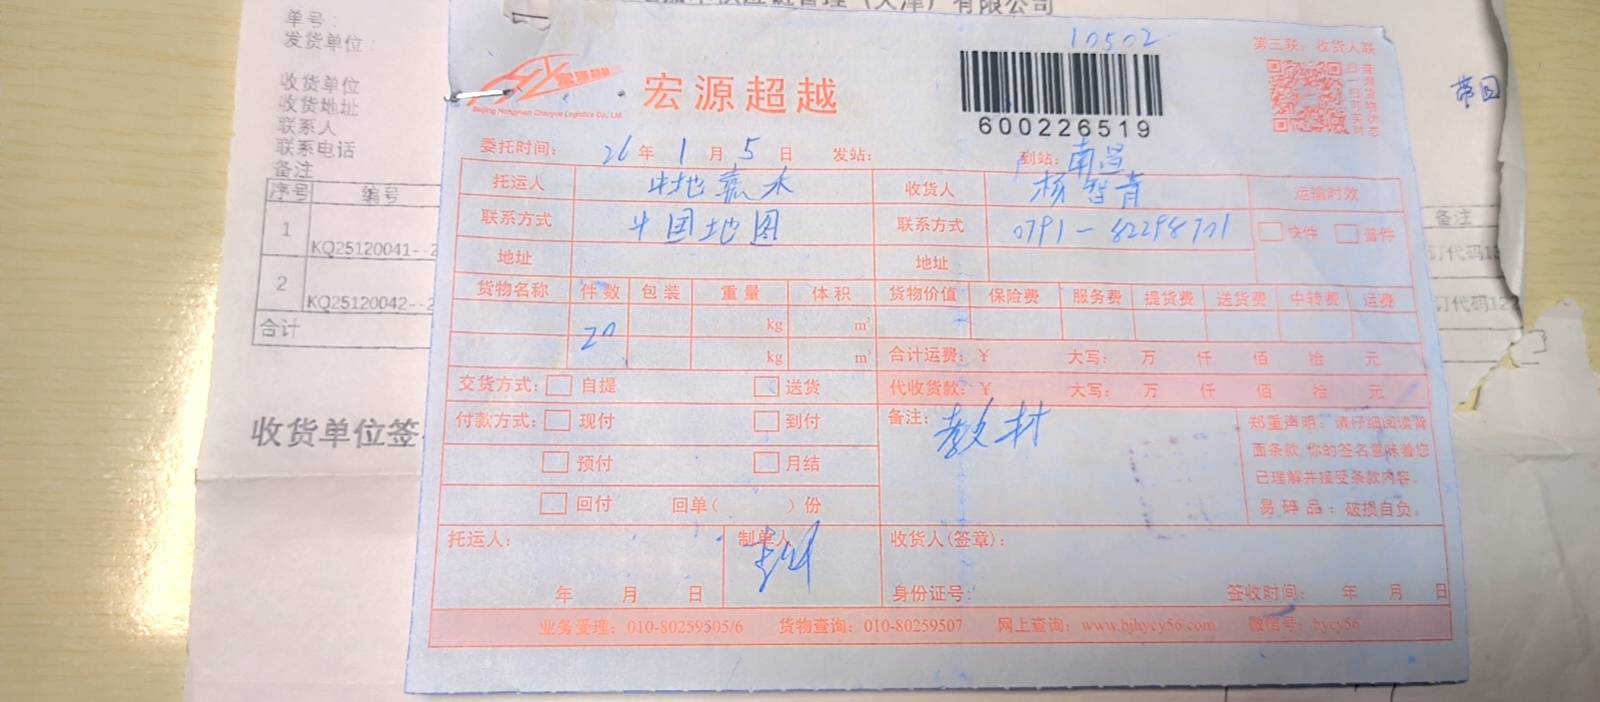 有限公司
单号:
发货单位
收货单位
收货地址
联系人
联系电话
备注
序号 编号 备注
1 KQ25120041--2
2 KQ25120042--2
合计
收货单位签
带回
10502
第三联:收货人联
宏源超越
Beijing Hongyuan Chaoyue Logistics Co., Ltd.
600226519
扫一扫 查货物状态
委托时间: 26 年 1 月 5 日 发站: 到站: 南昌
托运人 中地嘉木 收货人 杨智青 运输时效
联系方式 中国地图 联系方式 0791-82298701 快件 普件
地址 地址
货物名称 件数 包装 重量 体积 货物价值 保险费 服务费 提货费 送货费 中转费 运费
20 kg m³
kg m³ 合计运费: ¥ 大写: 万 仟 佰 拾 元
交货方式: 自提 送货 代收货款: ¥ 大写: 万 仟 佰 拾 元
付款方式: 现付 到付 备注: 教材
预付 月结
回付 回单( )份
郑重声明:请仔细阅读背
面条款,你的签名意味着您
已理解并接受条款内容。
易碎品:破损自负。
托运人: 制单人 收货人(签章):
年 月 日 身份证号: 签收时间: 年 月 日
业务受理: 010-80259505/6 货物查询: 010-80259507 网上查询: www.bjhycy56.com 微信号: hycy56